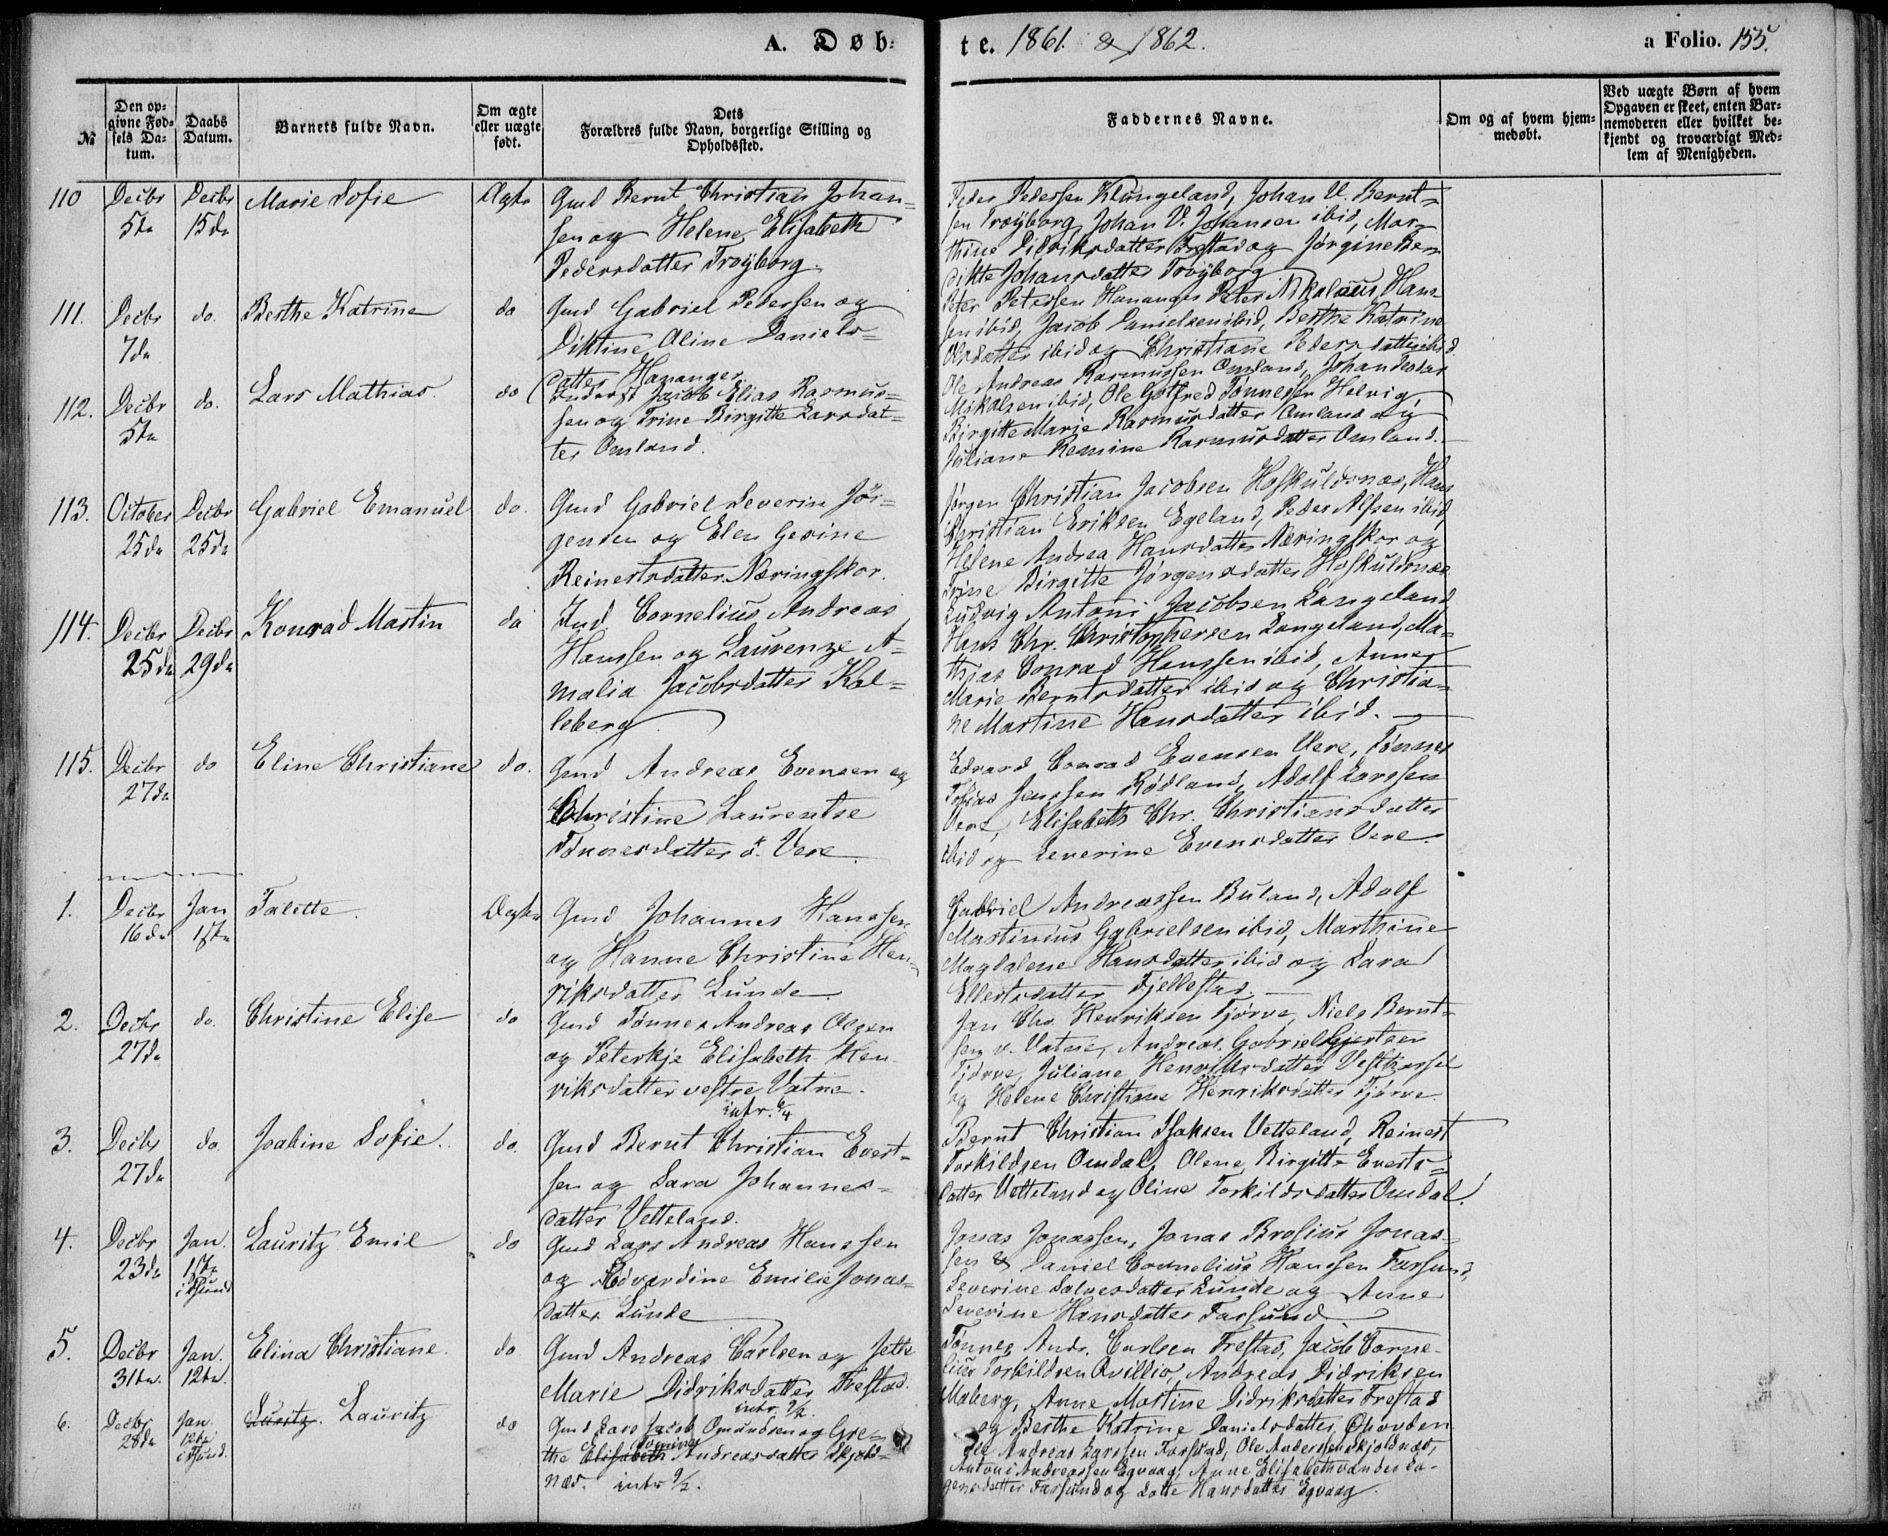 A. Døb=
te. 1861. & 1862.
a Folio. 155.
№
Den op=
givne Fød=
sels Da=
tum.
Daabs
Datum.
Barnets fulde Navn.
Om ægte
eller uægte
født.
Dets
Forældres fulde Navn, borgerlige Stilling og
Opholdssted.
Faddernes Navne.
Om og af hvem hjem=
medøbt.
Ved uægte Børn af hvem
Opgaven er skeet, enten Bar=
nemoderen eller hvilket be=
kjendt og troværdigt Med=
lem af Menigheden.
110 Decbr 5te Decbr 15de Marie Sofie Ægte
Gmd Bernt Christian Johan=
sen og Helene Elisabeth
Pedersdatter Trøyborg.
Peder Pedersen Klungeland, Johan V. Bernt=
sen Trøyborg, Johan V. Johansen ibid, Mar=
thine Didriksdatter Frestad og Jørgine Ben=
dikte Johansdatter Trøyborg
111. Decbr 7de do. Berthe Katrine do
Gmd Gabriel Pedersen og
Diktine Oline Daniels=
datter Hananger
Peter Petersen Hananger, Peter Nikolaus Han=
sen ibid, Jacob Danielsen ibid, Berthe Katrine
Olsdatter ibid og Christiane Pedersdatter ibid.
112. Decbr 5te do. Lars Mathias do
Jacob Elias Rasmus=
sen og Trine Birgitte Larsdat=
ter Omland.
Ole Andreas Rasmussen Omland, Johan Peder
Mikalsen ibid, Ole Gotfred Tønnessen Helvig,
Birgitte Marie Rasmusdatter Omland og
Juliane Remine Rasmusdatter Omland.
113. October 25de Decbr 25de Gabriel Emanuel do.
Gmd Gabriel Severin Jør=
gensen og Elen Gesine
Reinertsdatter Næringskor.
Jørgen Christian Jacobsen Hofkuldsnæs, Hans
Christian Eriksen Egeland, Peder Alfsen ibid,
Helene Andrea Hansdatter Næringskor og
Trine Birgitte Jørgensdatter Hofkuldsnæs
114. Decbr 25de Decbr 29de Konrad Martin do
Ind. Cornelius Andreas
Hanssen og Laurenze A=
malia Jacobsdatter Kal=
leberg
Ludvig Antoni Jacobsen Langeland
Hans Chr. Christophersen Langeland, Ma=
thias Conrad Hanssen ibid, Anne
Marie Berntsdatter ibid og Christia=
ne Martine Hansdatter ibid.
115. Decbr 27de do Eline Christiane do.
Gmd Andreas Evensen og
Christine Laurentse
Tønnesdatter ø. Vere.
Edvard Conrad Evensen Vere, Tønnes
Tobias Jenssen Rødland, Adolf Larssen
Vere, Elisabeth Chr. Christiansdatter
ibid og Severine Evensdatter Vere.
1. Decbr 16de Jan 1ste Talette. Ægte
Gmd Johannes Hanssen
og Hanne Christine Hen=
riksdatter Lunde.
Gabriel Andreassen Buland, Adolf
Martinius Gabrielsen ibid, Marthine
Magdalene Hansdatter ibid og Sara
Ellertsdatter Fjellestad.
2. Decbr 27de do. Christine Elise do
Gmd Tønnes Andreas Olsen
og Peterkje Elisabeth Hen=
riksdatter vestre Vatne.
intr. 6/4
Jan Chr. Henriksen Tjørve, Niels Bernt=
sen v. Vatne, Andreas Gabriel Gjertsen
Tjørve, Juliane Henriksdatter Vesthassel
og Helene Christiane Henriksdatter Tjørve.
3. Decbr 27de do. Joakine Sofie. do.
Gmd Bernt Christian Evert=
sen og Sara Johannes=
datter Vetteland.
Bernt Christian Isaksen Vetteland, Reinert
Torkildsen Omdal, Olene Birgitte Everts=
datter Vetteland og Oline Torkildsdatter Omdal.
4. Decbr 23de Jan. 1ste i Fsund Lauritz Emil do
Gmd Lars Andreas Hanssen
og Edvardine Emilie Jonas=
datter Lunde
Jonas Jonassen, Jonas Brosius Jonas=
sen & Daniel Cornelius Hanssen Farsund,
Severine Salvesdatter Lunde og Anne
Severine Hansdatter Farsund
5. Decbr 31te. Jan. 12te. Elina Christiane. do
Gmd Andreas Carlsen og Jette
Marie Didriksdatter Frestad.
intr. 9/2.
Tønnes Andr. Carlsen Frestad, Jacob Corne=
lius Torkildsen Qvillio, Andreas Didriksen
Maberg, Anne Martine Didriksdatter Frestad
og Berthe Katrine Danielsdatter
6. Decbr 28de Jan. 12te i Fsund. Luritz. Lauritz do
Gmd Lars Jacob Omundsen og Gre=
the Elisabeth Andreasdatter Skjold=
næs. intr 9/2.
Ole Andreas Larssen Farsund, Ole Andersen Skjoldnæs,
Antoni Andreassen Egvaag, Anne Elisabeth
Farsund og Lotte Hansdatter Egvaag.